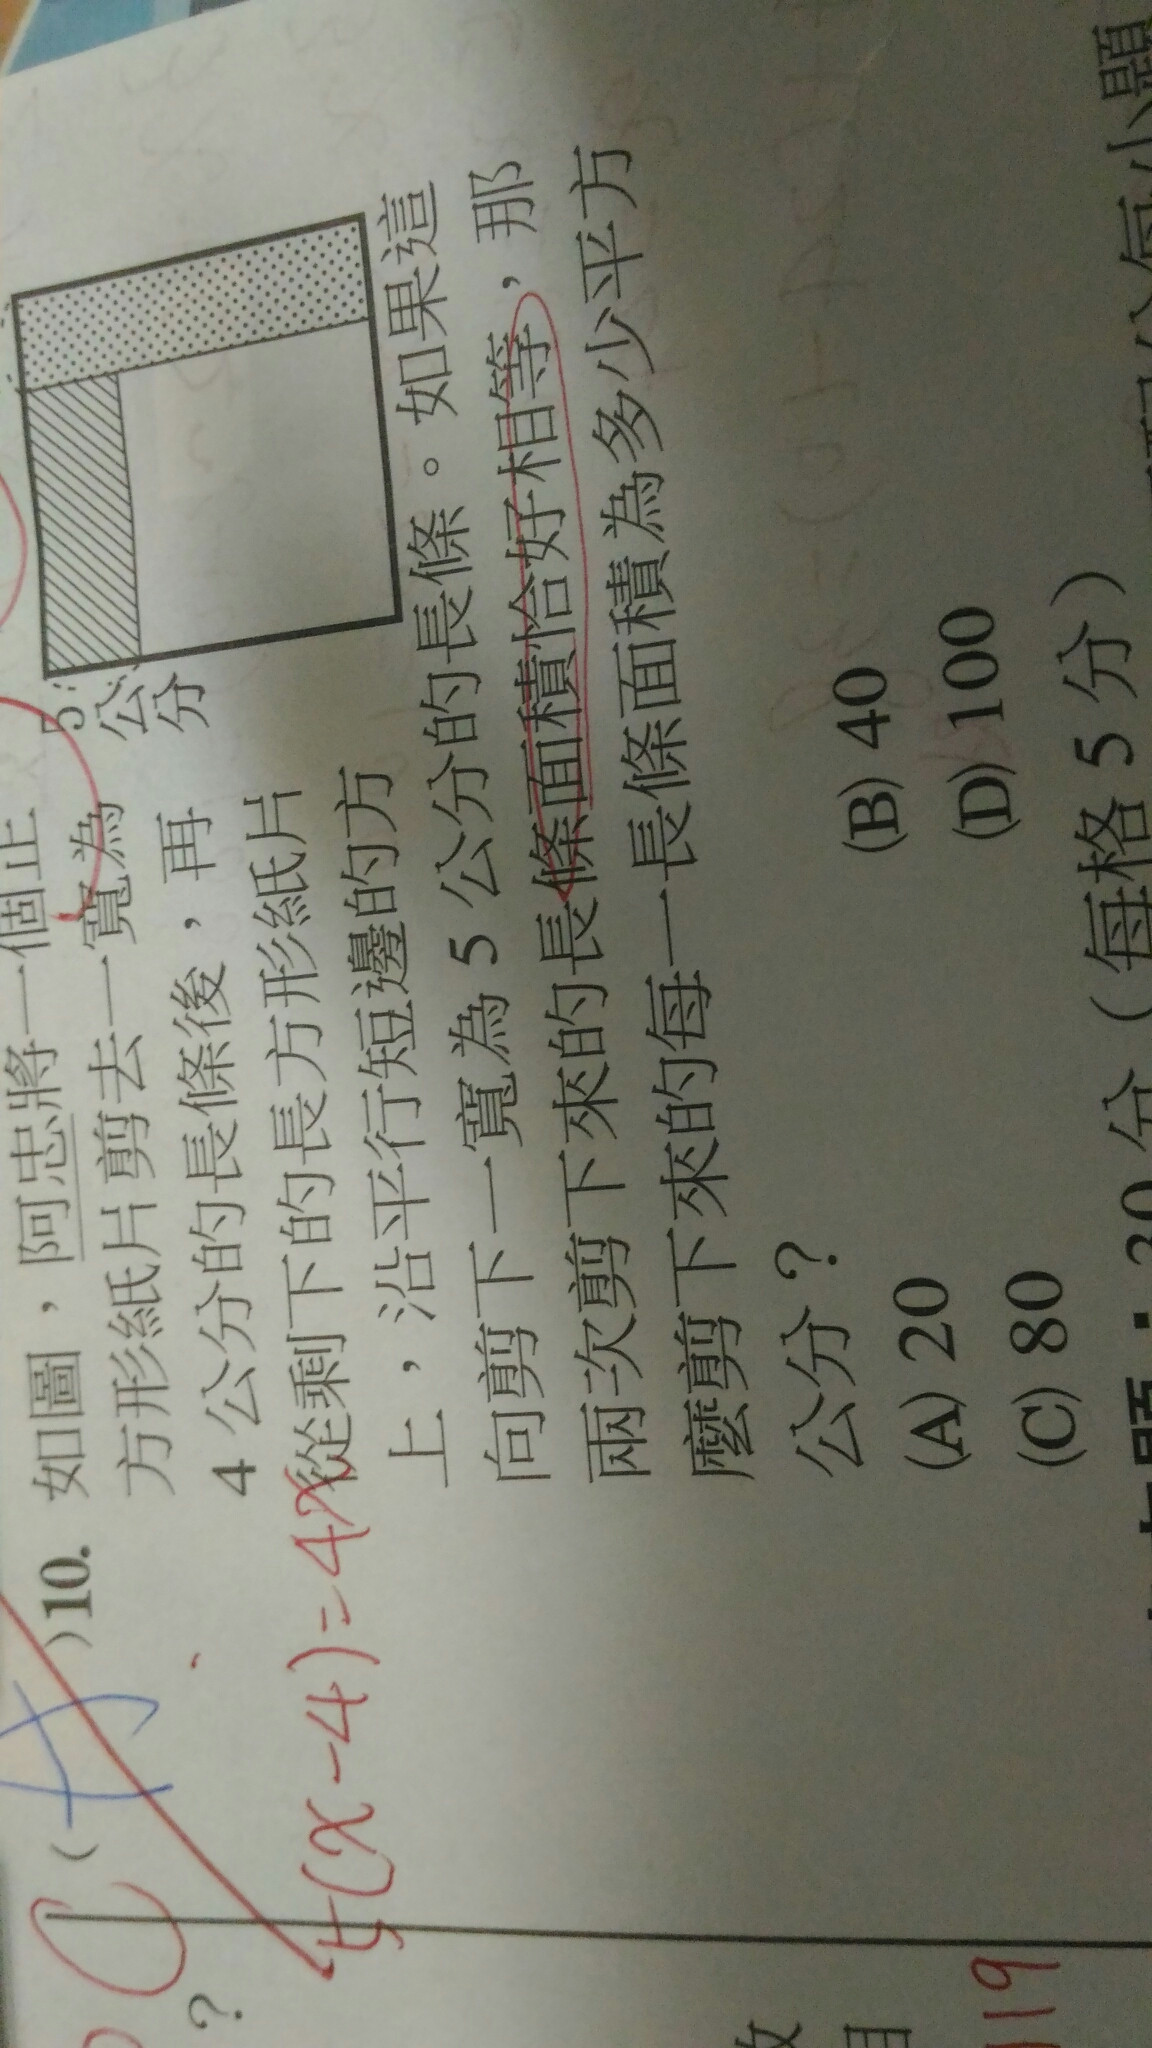 10. 如圖，阿忠將一個正
方形紙片剪去一寬為
4 公分的長條後，再
從剩下的長方形紙片
上，沿平行短邊的方
向剪下一寬為 5 公分的長條。如果這
兩次剪下來的長條面積恰好相等，那
麼剪下來的每一長條面積為多少平方
公分？
(A) 20
(B) 40
(C) 80
(D) 100
5
公
分
A
C
5(x-4)=4x
？
119
分（每格 5 分）